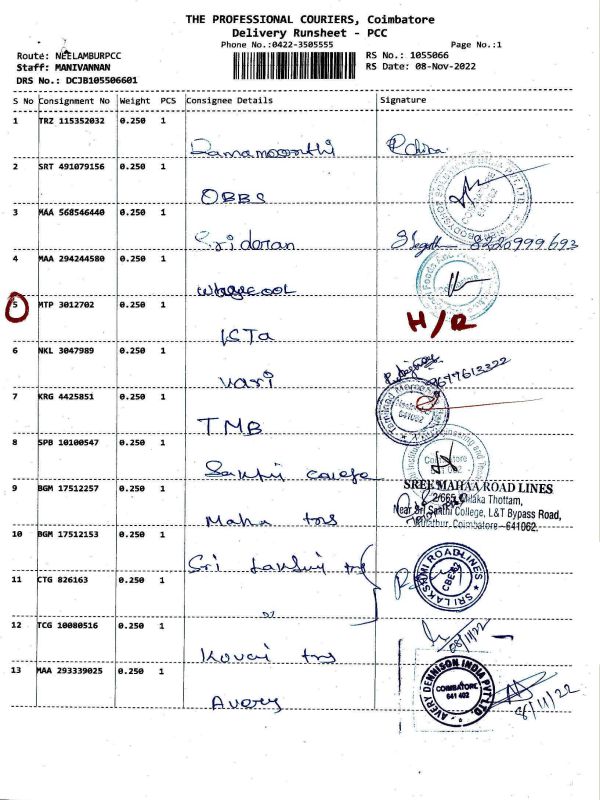 THE PROFESSIONAL COURIERS, Coimbatore
Delivery Runsheet - PCC
Phone No.:0422-3505555 Page No.:1
Route: NEELAMBURPCC RS No.: 1055066
Staff: MANIVANNAN RS Date: 08-Nov-2022
DRS No.: DCJB105506601
S No Consignment No Weight PCS Consignee Details Signature
1 TRZ 115352032 0.250 1
Ramamoorthi
2 SRT 491079156 0.250 1
OBBS
3 MAA 568546440 0.250 1
Sridoran 8220999693
4 MAA 294244580 0.250 1
5 MTP 3012702 0.250 1 H/R
KSTa
6 NKL 3047989 0.250 1
Vari 9677613322
7 KRG 4425851 0.250 1
TMB 641062
8 SPB 10100547 0.250 1
Coimbatore
Sakthi
SREE MAHAA ROAD LINES
9 BGM 17512257 0.250 1
2/665, Thottam,
Near Sri Sakthi College, L&T Bypass Road,
Maha trns
Coimbatore - 641062.
10 BGM 17512153 0.250 1
Sri Lakshmi trs
SRI LAKSHMI ROADLINES
CBE-62
11 CTG 826163 0.250 1
12 TCG 10080516 0.250 1
08/11/22
Kovai trns
13 MAA 293339025 0.250 1
AVERY DENNISON INDIA PVT LTD
COIMBATORE
641 402
Avery
8/11/22